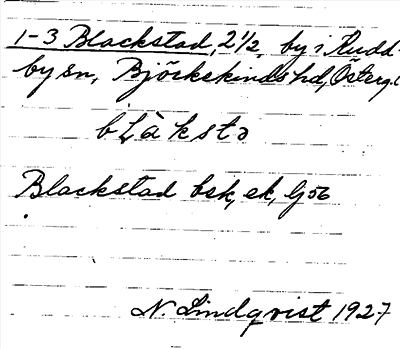 1-3 Blackstad, 2 1/2, by i Rudd-
by sn, Björkekinds hd, Österg.
blàksta
Blackstad bsk, ek, Gj56
N. Lindqvist 1927